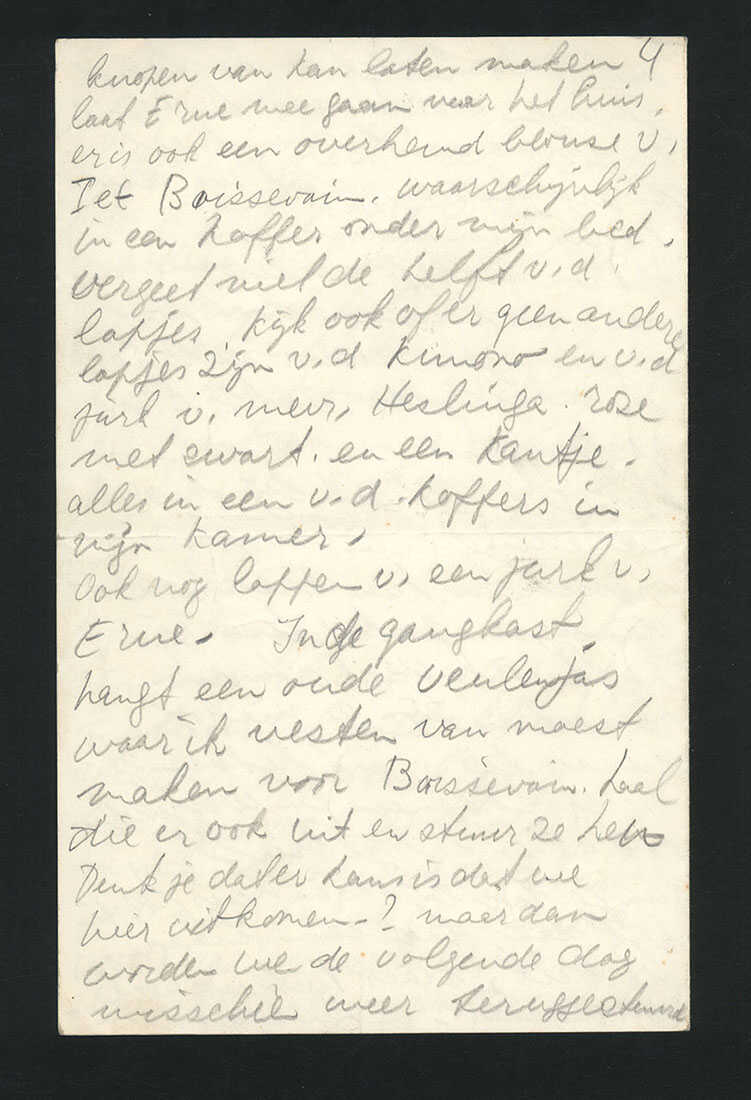 knopen van kan laten maken 4
laat Erne mee gaan naar het huis.
er is ook een overhemd blouse v.
Iet Boissevain. waarschijnlijk
in een koffer onder mijn bed.
vergeet niet de helft v.d.
lapjes. kijk ook of er geen andere
lapjes zijn v.d kimono en v.d
jurk v. mevr. Heslinga. rose
met swart. en een kantje.
alles in een v.d. koffers in
mijn kamer.
Ook nog lappen v. een jurk v.
Erne. In de gangkast
hangt een oude veulenjas
waar ik vesten van moest
maken voor Boissevain. haal
die er ook uit en stuur ze hen
Denk je dat er kans is dat we
hier uitkomen-? maar dan
worden we de volgende dag
misschie weer teruggestuurd